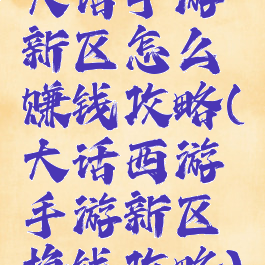 大话手游
新区怎么
赚钱攻略(
大话西游
手游新区
挣钱攻略)